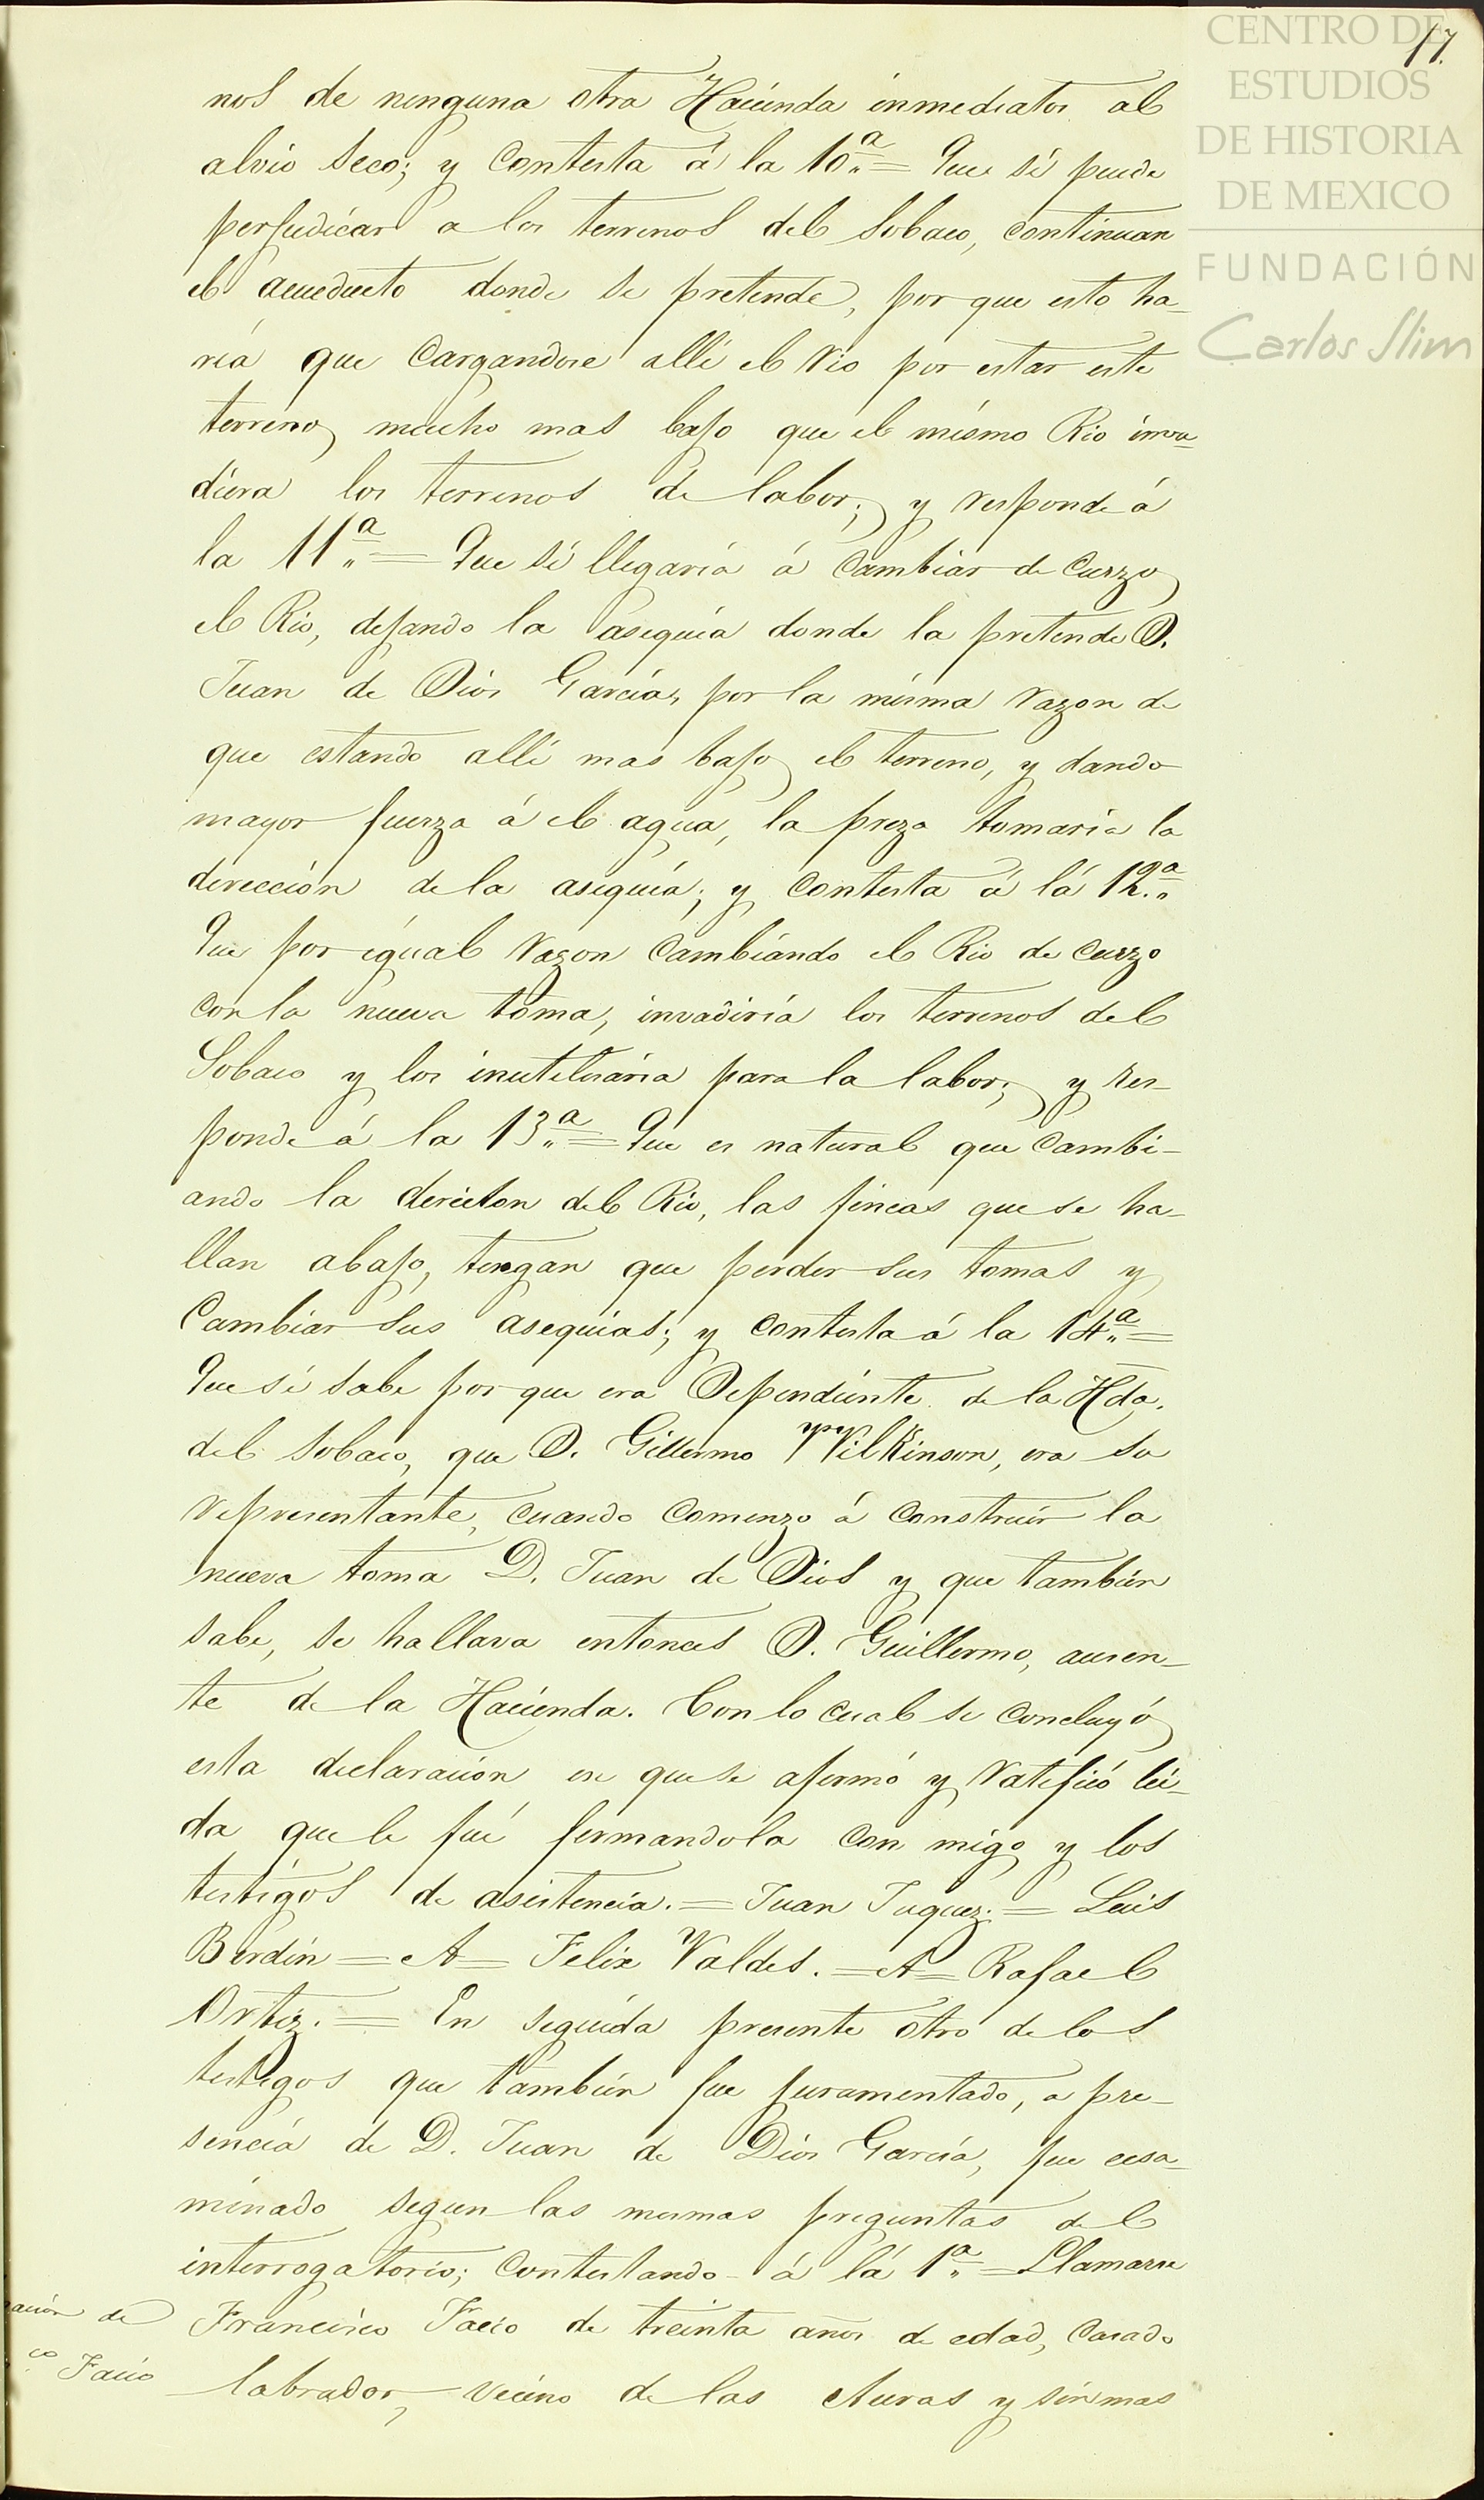 17.
CENTRO DE
ESTUDIOS
DE HISTORIA
DE MEXICO
FUNDACIÓN
Carlos Slim
nos de ninguna otra Hacienda inmediatos al
alvio seco; y contesta á la 10.ª = Que sí puede
perjudicar a los terrenos del Sobaco, continuan
el acueducto donde se pretende, por que esto ha-
ría que cargandose allí el rio por estar este
terreno mucho mas bajo que el mismo Rio inva-
diera los terrenos de labor; y responde á
la 11.ª = Que sí llegaría á cambiar de curzo
el Rio, dejando la asequia donde la pretende D.
Juan de Dios García, por la misma razon de
que estando allí mas bajo el terreno, y dando
mayor fuerza á el agua, la preza tomaria la
dirección de la asequia; y contesta á lá 12.ª
Que por igual razon cambiando el Rio de curzo
con la nueva toma, invadiría los terrenos del
Sobaco y los inutilisaria para la labor; y res-
ponde á la 13.ª = Que es natural que cambi-
ando la direccion del Rio, las fincas que se ha-
llan abajo, tengan que perder sus tomas y
cambiar sus asequias; y contesta á la 14.ª =
Que sí sabe por que era Dependiente de la Hda.
del Sobaco, que D. Gillermo Wilkinson, era su
representante, cuando comenzo á construir la
nueva toma D. Juan de Dios y que tambien
sabe, se hallava entonces D. Guillermo, ausen-
te de la Hacienda. Con lo cual se concluyó
esta declaración en que se afirmó y ratificó lei-
da que le fué firmandola con migo y los
testigos de asistencia. = Juan Jaquez. = Luis
Berdin = A = Felix Valdes. = A = Rafael
Ortiz. = En seguida presente otro de los
testigos que tambien fue juramentado, a pre-
sencia de D. Juan de Dios García, fue ecsa-
minado segun las mismas preguntas del
interrogatorio; contestando á lá 1.ª = Llamarse
Francisco Facio de treinta años de edad, casado
labrador, vecino de las Auras y sin mas
ación de
co Facio